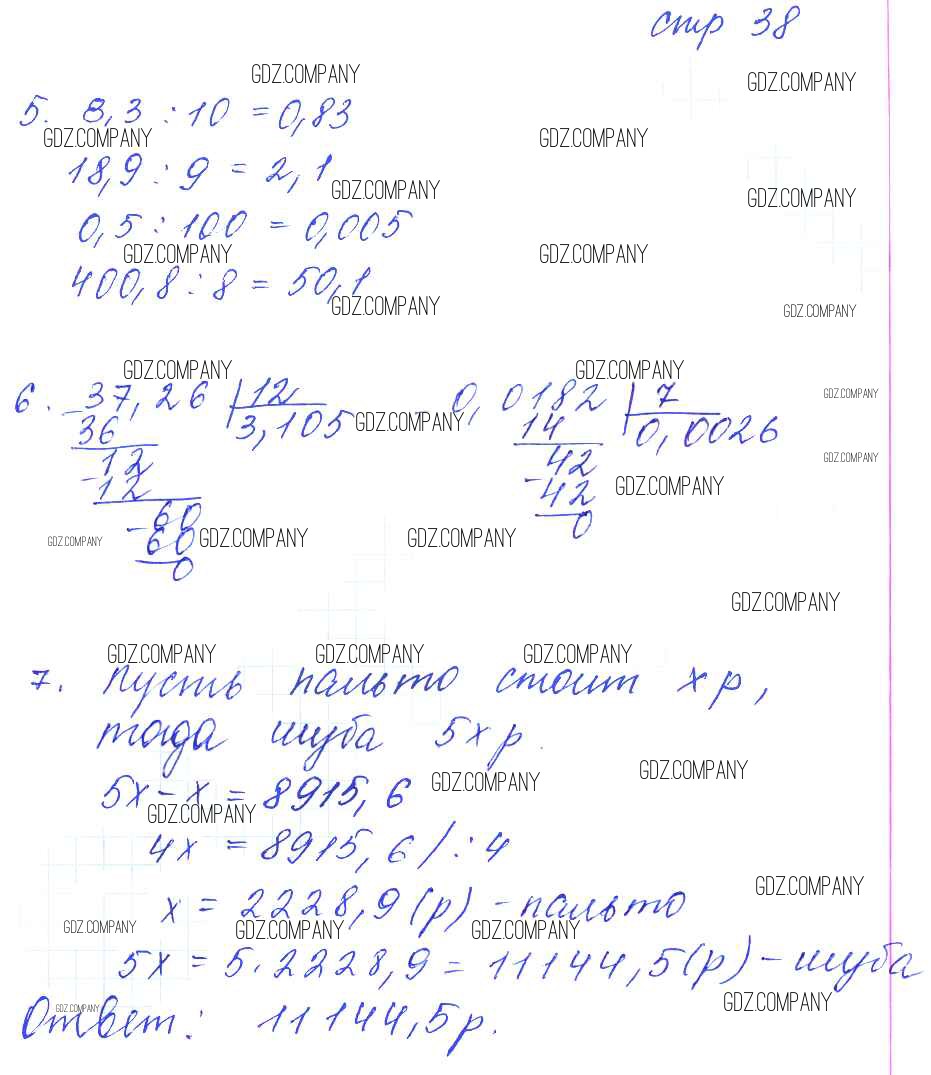 стр 38
GDZ.COMPANY
GDZ.COMPANY
5. 8,3 : 10 = 0,83
GDZ.COMPANY
GDZ.COMPANY
18,9 : 9 = 2,1
GDZ.COMPANY
GDZ.COMPANY
0,5 : 100 = 0,005
GDZ.COMPANY
GDZ.COMPANY
400,8 : 8 = 50,1
GDZ.COMPANY
GDZ.COMPANY
GDZ.COMPANY
GDZ.COMPANY
GDZ.COMPANY
6. 37,26 12 0,0182 7
36 3,105 GDZ.COMPANY 14 0,0026
GDZ.COMPANY
12 42
12 42 GDZ.COMPANY
60 0
GDZ.COMPANY 60 GDZ.COMPANY GDZ.COMPANY
0
GDZ.COMPANY
GDZ.COMPANY GDZ.COMPANY GDZ.COMPANY
7. Пусть пальто стоит x р,
тогда шуба 5x р.
GDZ.COMPANY
GDZ.COMPANY
5x - x = 8915,6
GDZ.COMPANY
4x = 8915,6 / : 4
GDZ.COMPANY
x = 2228,9 (р) - пальто
GDZ.COMPANY GDZ.COMPANY GDZ.COMPANY
5x = 5 · 2228,9 = 11144,5 (р) - шуба
GDZ.COMPANY
GDZ.COMPANY
Ответ: 11144,5 р.